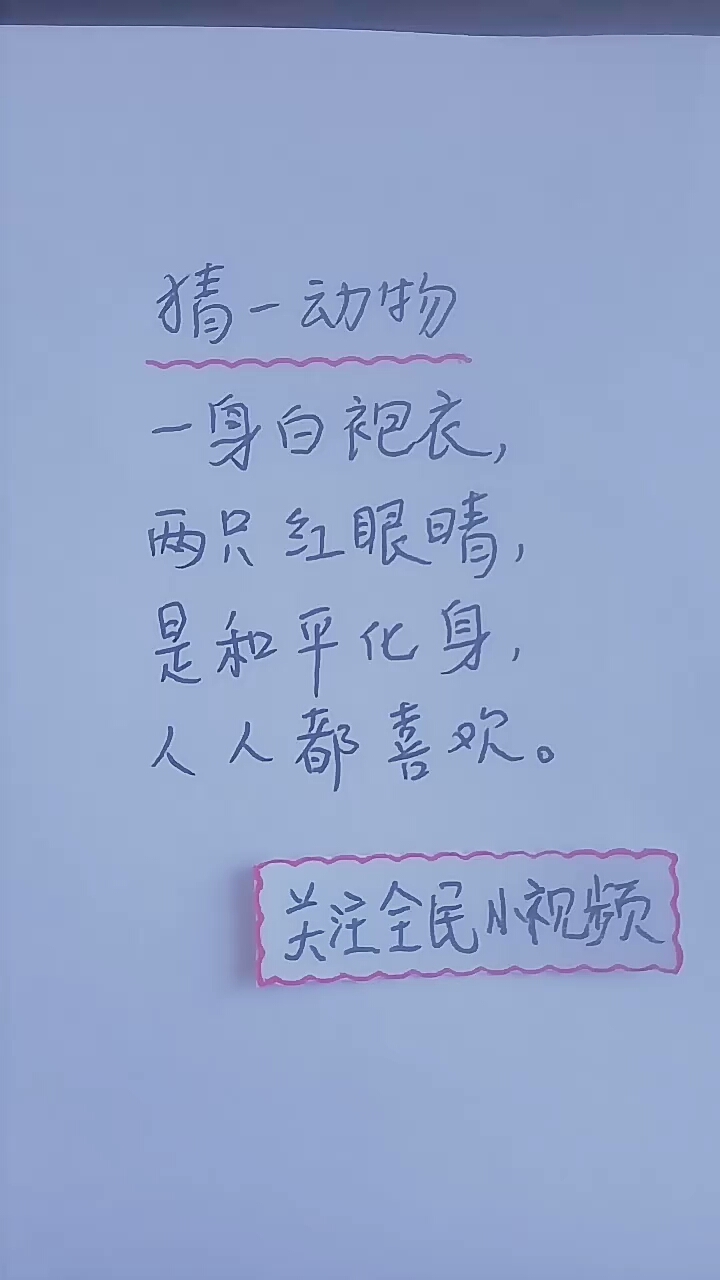 猜一动物
一身白袍衣，
两只红眼睛，
是和平化身，
人人都喜欢。
关注全民小视频